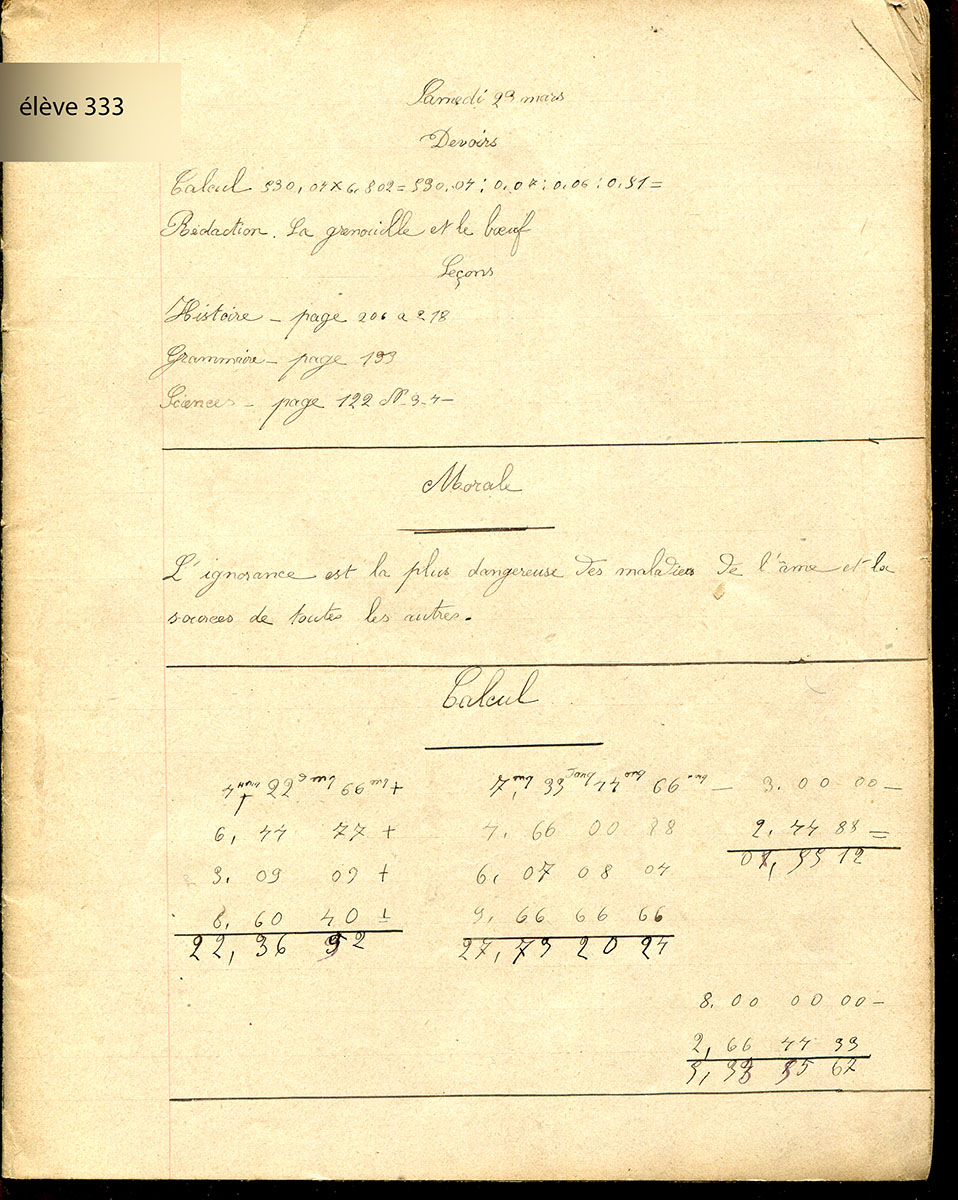 élève 333
Samedi 23 mars
Devoirs
Calcul 530,04 x 6,802 = 530,04 : 0,07 : 0,06 : 0,51 =
Rédaction. La grenouille et le bœuf
Leçons
Histoire – page 206 a 218
Grammaire – page
Sciences – page 122 N 3-4 –
Morale
L'ignorance est la plus dangereuse des maladies de l'âme et la
sources de toutes les autres.
Calcul
4 22 66 + 7 33 44 66 3.00 00 –
6, 44 77 + 4. 66 00 88 2, 44 88 =
3, 09 09 + 6, 07 08 04 55 12
8, 60 40 = 9, 66 66 66
22, 36 92 27, 73 20 24
8.00 00 00 –
2, 66 44 33
5, 33 55 67